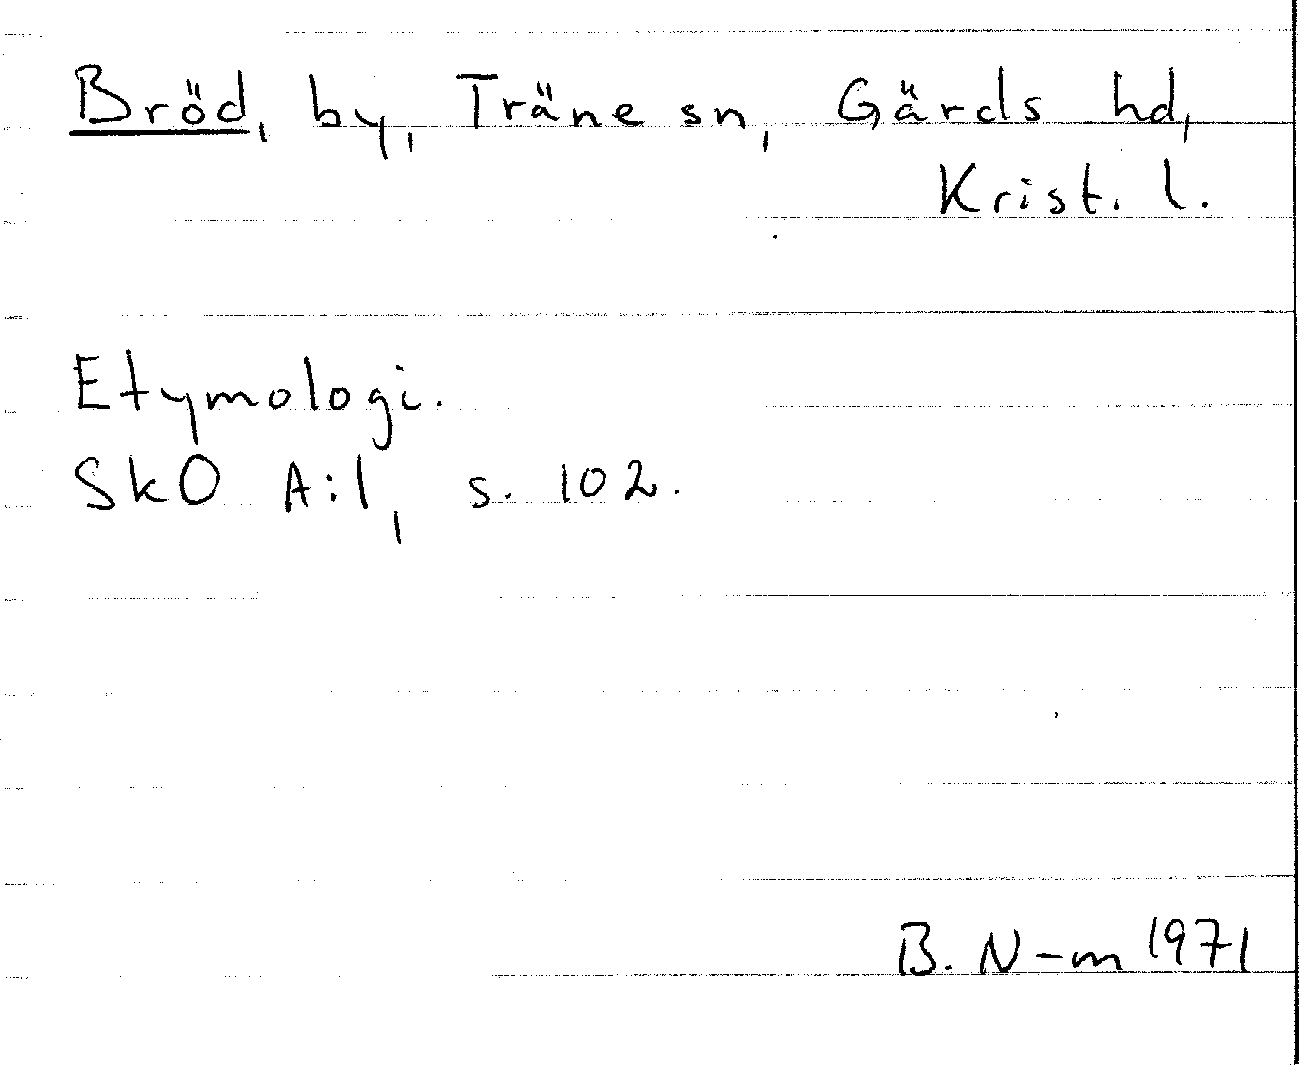 Bröd, by, Träne sn, Gärds hd,
Krist. l.
Etymologi.
SkO A:1, s. 102.
B. N-m 1971